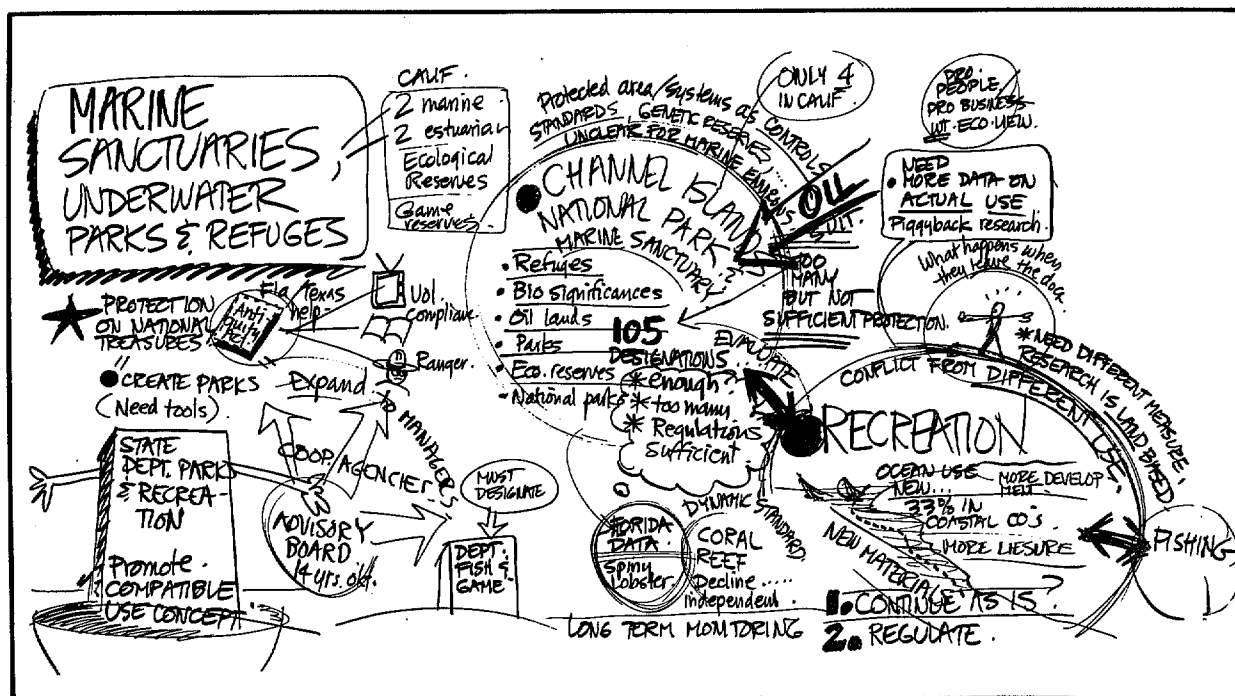 MARINE
SANCTUARIES,
UNDERWATER
PARKS & REFUGES
CALIF.
2 marine
2 estuarian
Ecological
Reserves
Game
reserves.
Protected area/systems as CONTROLS
STANDARDS, GENETIC RESERVES,
UNCLEAR FOR MARINE
ONLY 4
IN CALIF
PRO.
PEOPLE
PRO BUSINESS
WT. ECO. VIEW.
NEED
• MORE DATA ON
ACTUAL USE
Piggyback research.
What happens when
they leave the dock
CHANNEL ISLANDS
NATIONAL PARK &
MARINE SANCTUARY
OIL
• Refuges
• Bio significances
• Oil lands
• Parks
• Eco. reserves
• National parks
105
DESIGNATIONS...
EVALUATE
* enough?
* too many
* Regulations
Sufficient
TOO
MANY
BUT NOT
SUFFICIENT PROTECTION.
★ PROTECTION
ON NATIONAL
TREASURES
"
● CREATE PARKS
(Need tools).
Anti
quity
Act.
Fla/Texas
help-
Vol.
Compliance
Ranger.
Expand
TO MANAGERS
COOP. AGENCIES
STATE
DEPT. PARKS
& RECREA-
TION
Promote.
COMPATIBLE
USE CONCEPT
ADVISORY
BOARD
14 yrs. old.
MUST
DESIGNATE
DEPT.
FISH &
GAME
FLORIDA
DATA.
Spiny
Lobster.
DYNAMIC STANDARD
CORAL
REEF
Decline .....
independent.
LONG TERM MONITORING
CONFLICT FROM DIFFERENT USE.
* NEED DIFFERENT MEASURE.
RESEARCH IS LAND BASED
RECREATION
OCEAN USE
NEW...
MORE DEVELOP
MENT.
33% IN
COASTAL CO's
MORE LIESURE
NEW MATERIAL
FISHING
1. CONTINUE AS IS.
2. REGULATE.